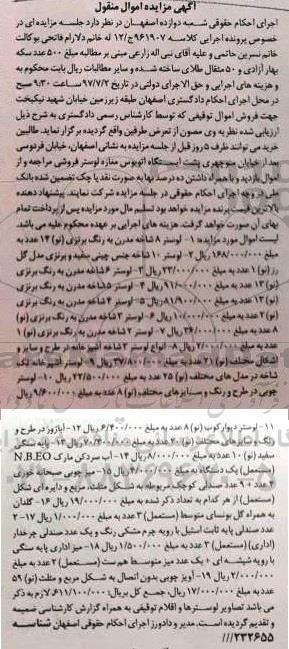 آگهی مزایده اموال منقول
اجرای احکام حقوقی شعبه دوازده اصفهان در نظر دارد جلسه مزایده ای در
خصوص پرونده اجرایی کلاسه ۹۶۱۹۰۷ج/۱۲ له خانم دلارام فاتحی بوکالت
خانم نسرین حاتمی و علیه آقای نبی اله زارعی مبنی بر مطالبه مبلغ ۵۰۰ عدد سکه
بهار آزادی و ۵۰ مثقال طلای ساخته شده و سایر مطالبات ریال بابت محکوم به
و هزینه های اجرایی و حق الاجرای دولتی در تاریخ ۹۷/۷/۲ ساعت ۹:۳۰ صبح
در محل اجرای احکام دادگستری اصفهان طبقه زیرزمین خیابان شهید نیکبخت
جهت فروش اموال توقیفی که توسط کارشناس رسمی دادگستری به شرح ذیل
ارزیابی شده نظریه وی مصون از تعرض طرفین واقع گردیده برگزار نماید. طالبین
خرید می توانند ظرف ۵ روز قبل از جلسه مزایده به نشانی اصفهان، خیابان فردوسی
بعد از خیابان منوچهری پشت ایستگاه اتوبوس مغازه لوستر فروشی مراجعه و از
اموال بازدید و با همراه داشتن ده درصد بها به صورت نقد یا چک تضمین شده بانک
ملی در وجه اجرای احکام حقوقی در جلسه مزایده شرکت نمایند. پیشنهاد دهنده
بالاترین قیمت برنده مزایده خواهد بود تسلیم مال مورد مزایده پس از پرداخت تمام
بهای آن صورت خواهد گرفت. هزینه های اجرایی بر عهده محکوم علیه می باشد.
لیست اموال مورد مزایده: ۱- لوستر ۸ شاخه مدرن به رنگ برنزی (نو) ۱۴ عدد به
مبلغ ۱۶۸/۰۰۰/۰۰۰ ریال ۲- لوستر ۱۰ شاخه جنس چینی سفید و برنزی مدل گل
رز (نو) ۱ عدد به مبلغ ۲۳/۰۰۰/۰۰۰ ریال ۳- لوستر ۶ شاخه مدرن به رنگ برنزی
(نو) ۱۳ عدد به مبلغ ۹۱/۰۰۰/۰۰۰ ریال ۴- لوستر ۵ شاخه مدرن به رنگ برنزی
(نو) ۱۳ عدد به مبلغ ۸۱/۹۰۰/۰۰۰ ریال ۵- لوستر ۴ شاخه مدرن به رنگ برنزی
(نو) ۲ عدد به مبلغ ۱۰/۰۰۰/۰۰۰ ریال ۶- لوستر ۳ شاخه مدرن به رنگ برنزی (نو)
۸ عدد به مبلغ ۳۶/۰۰۰/۰۰۰ ریال ۷- لوستر ۲ شاخه مدرن به رنگ برنزی (نو) ۱
عدد به مبلغ ۲/۰۰۰/۰۰۰ ریال ۸- انواع لوستر ۳ شاخه آشپزخانه در طرح و سایز و
اشکال مختلف (نو) ۲۱ عدد به مبلغ ۳۷/۸۰۰/۰۰۰ ریال ۹- لوستر آشپزخانه تک
شاخه در مدل های مختلف (نو) ۲۵ عدد به مبلغ ۲۲/۵۰۰/۰۰۰ ریال ۱۰- لوستر
چوبی در طرح و رنگ و سایزهای مختلف (نو) ۸ عدد به مبلغ ۹/۶۰۰/۰۰۰ ریال
۱۱- لوستر دیوارکوب (نو) ۸ عدد به مبلغ ۶/۴۰۰/۰۰۰ ریال ۱۲- آباژور در طرح و
رنگ و سایزهای مختلف (نو) ۲۰ عدد به مبلغ ۷۰/۴۰۰/۰۰۰ ریال ۱۳- پایه سنگی
سفید (نو) ۱۰ عدد به مبلغ ۸/۰۰۰/۰۰۰ ریال ۱۴- آب سردکن مارک N.B.EO
(مستعمل) یک دستگاه به مبلغ ۴/۰۰۰/۰۰۰ ریال ۱۵- میز چوبی صبحانه خوری
۷ عدد + ۹ عدد صندلی کوچک مربوطه به شکل مثلث، مربع و دایره ای شکل
(مستعمل) از هر کدام به تعداد ذکر شده به مبلغ ۱۹/۰۰۰/۰۰۰ ریال ۱۶- گلدان
به همراه گل بونسای متوسط (مستعمل) ۳ عدد به مبلغ ۱/۰۰۰/۰۰۰ ریال ۱۷- ۲
عدد صندلی پایه ثابت استیل با رویه چرم مشکی رنگ و یک عدد صندلی چرخدار
(اداری) (مستعمل) ۳ عدد به مبلغ ۱/۵۰۰/۰۰۰ ریال ۱۸- میز اداری پایه سنگی
با رویه شیشه ای + یک عدد میز متوسط هم ست (مستعمل) ۲ عدد به مبلغ
۲/۰۰۰/۰۰۰ ریال ۱۹- آویز چوبی بدون اتصال به شکل مربع و مثلث (نو) ۵۹
عدد به مبلغ ۱۷/۰۰۰/۰۰۰ ریال، جمع کل بریال: ۶۱۱/۱۰۰/۰۰۰. لازم به ذکر
می باشد تصاویر لوسترها و اقلام توقیفی به همراه گزارش کارشناسی ضمیمه
و تقدیم گردیده است. مدیر و دادورز اجرای احکام حقوقی اصفهان شناسه
۲۳۲۶۵۵///